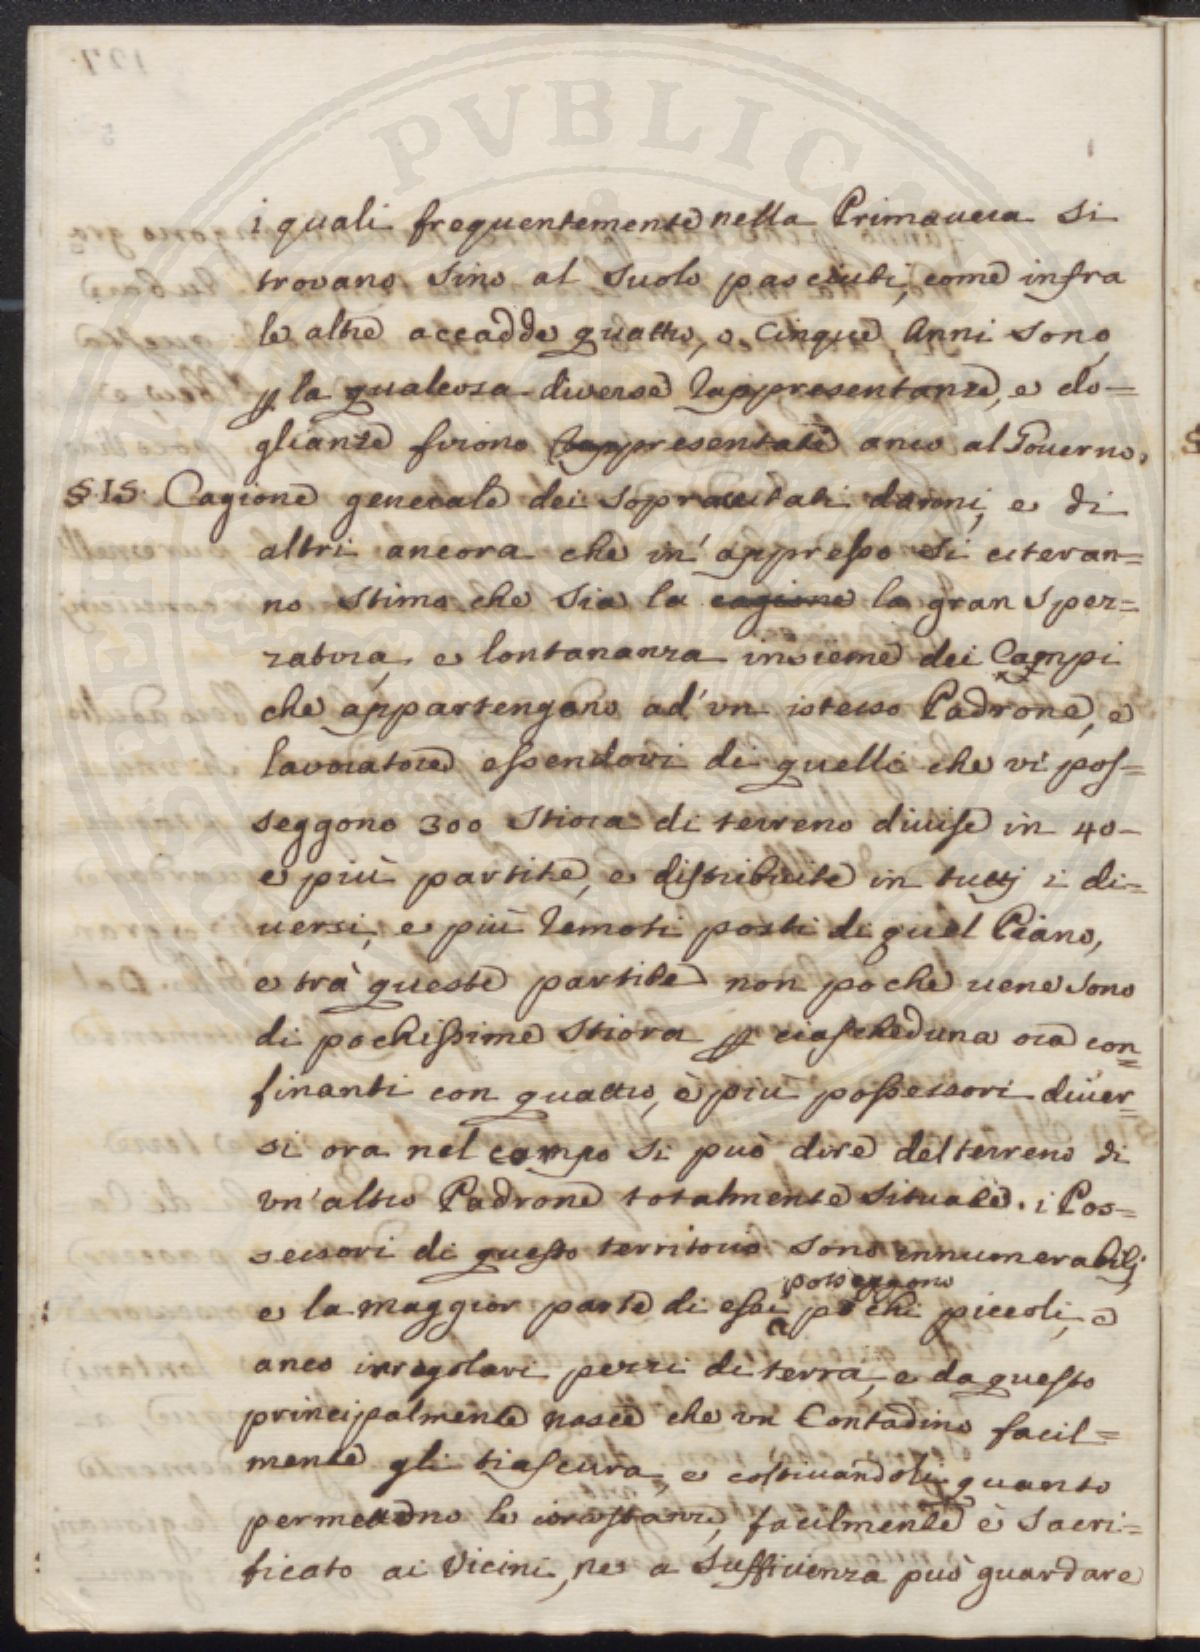 i quali frequentemente nella Primauera si
trovano sino al suolo pasciuti, come infra
le altre accadde quattro, o Cinque Anni sono
p la qualcosa diverse rappresentanze, e do=
glianze furono rappresentate anco al Gouerno.
§.15. Cagione generale dei sopracitati danni, e di
altri ancora che in' appresso si citeran=
no stimo che sia la cagione la gran sperz=
zatura, e lontananza insieme dei Campi
che appartengono ad' vn istesso Padrone, e
lavoratore essendovi di quelli che vi pos=
seggono 300 Stiora di terreno diuise in 40-
e più partite, e distribuite in tutti i di=
uersi, e più remoti posti di quel Piano,
e trà queste partite non poche uene sono
di pochissime Stiora p ciascheduna ora con=
finanti con quattro, è più possessori diuer=
si ora nel campo si può dire del terreno di
vn' altro Padrone totalmente situate. i Pos=
sessori di questo territorio sono innumerabili,
posseggono
e la maggior parte di essi pochi piccoli, e
anco irregolari pezzi di terra, e da questo
principalmente nasce che vn Contadino facil=
mente gli trascura, e coltiuandoli quanto
permettono le circostanze, facilmente è sacri=
ficato ai Vicini, ne a sufficienza può guardare